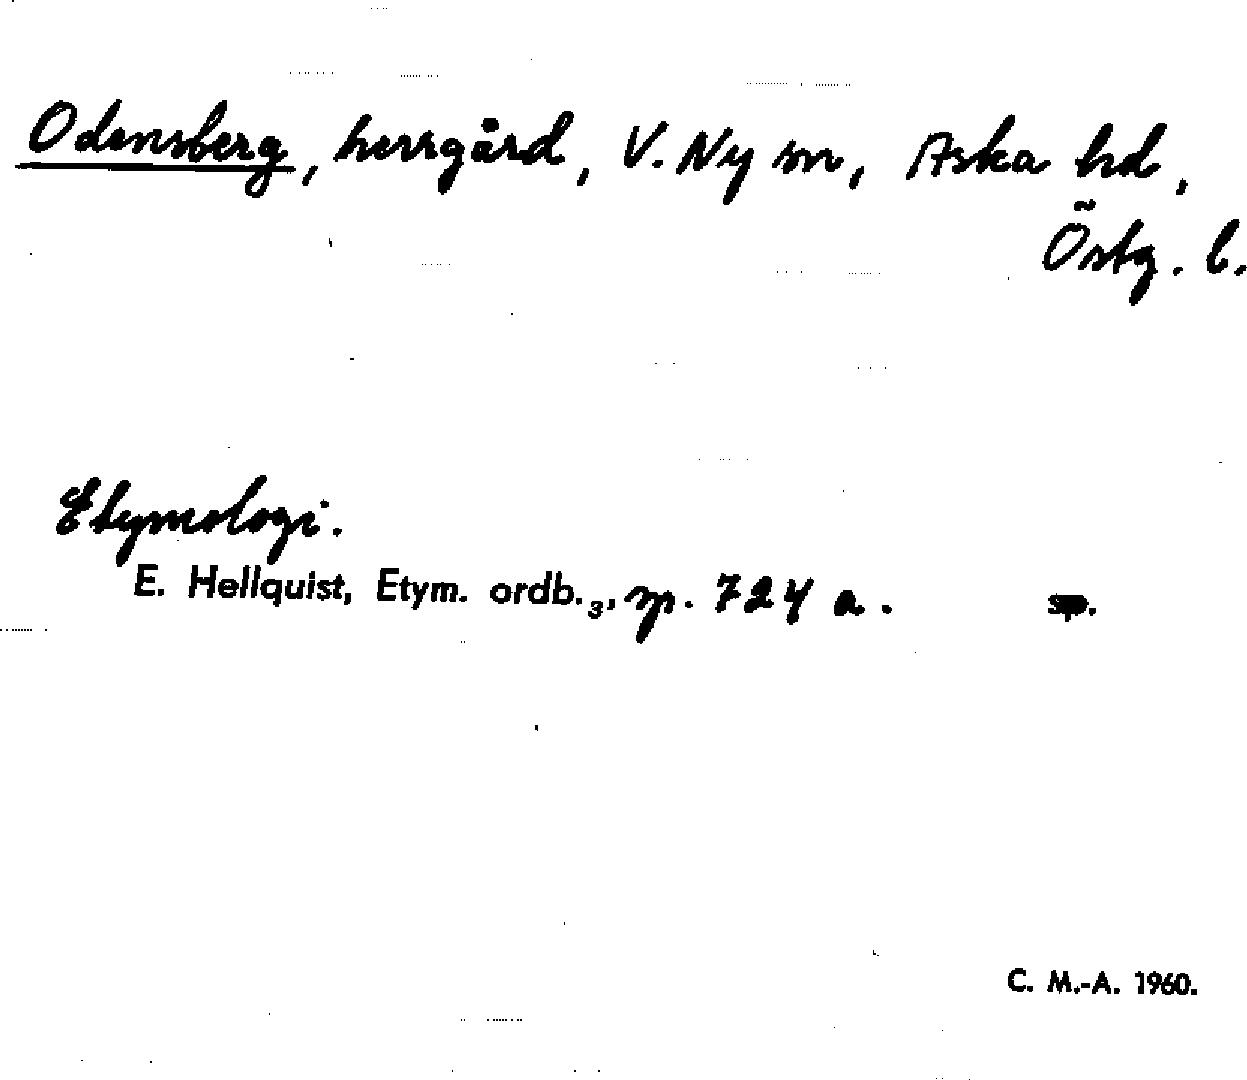 Odensberg, herrgård, V. Ny sn, Aska hd,
Östg. l.
Etymologi.
E. Hellquist, Etym. ordb.₃, sp. 724 a. sp.
C. M.-A. 1960.